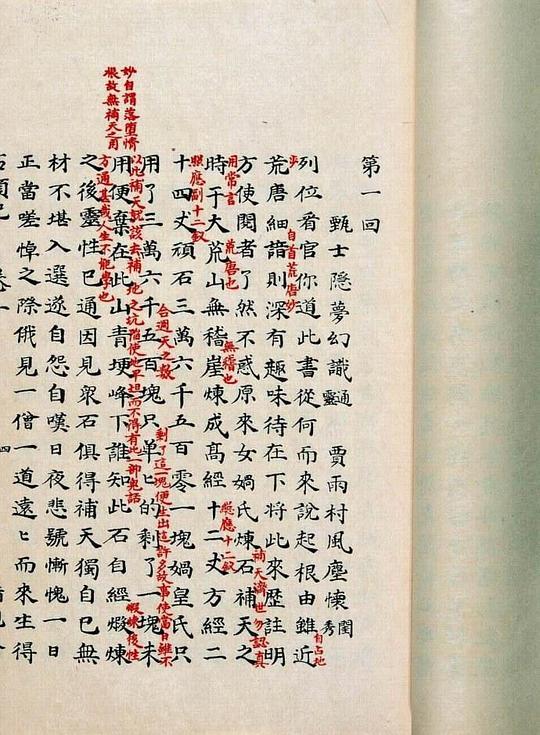 第一回
甄士隱夢幻識通靈　賈雨村風塵懷閨秀
列位看官你道此書從何而來說起根由雖近
自占地
步
自首荒唐妙
荒唐細諳則深有趣味待在下將此來歷註明
補天濟世勿認真
用常言
方使閱者了然不惑原來女媧氏煉石補天之
荒唐也
無稽也
照應十二釵
時于大荒山無稽崖煉成高經十二丈方經二
照應副十二釵
十四丈頑石三萬六千五百零一塊媧皇氏只
合週天之數
剩了這一塊便生出這許多故事使當日雖不
以此補天就該去補地之坑陷使地平坦而不得有此一部鬼話
用了三萬六千五百塊只單〻的剩了一塊未
用便棄在此山青埂峰下誰知此石自經煆煉
妙自謂落墮情
根故無補天之用
煆煉後性
方通甚哉人生不能學也
之後靈性已通因見衆石俱得補天獨自己無
材不堪入選遂自怨自嘆日夜悲號慚愧一日
正當嗟悼之際俄見一僧一道遠〻而來生得